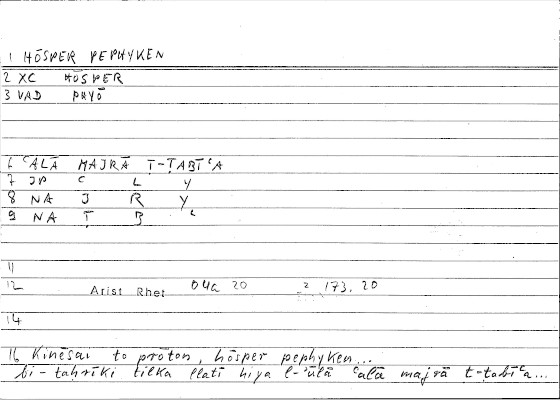 1 HŌSPER PEPHYKEN
2 XC HŌSPER
3 VAD PHYŌ
6 ʿALĀ MAJRĀ Ṭ-ṬABĪʿA
7 JP ʿ L Y
8 NA J R Y
9 NA Ṭ B ʿ
11
12 Arist Rhet 04a 20 2 173.20
14
16 Kinēsai to prōton, hōsper pephyken...
bi-taḥrīki tilka llatī hiya l-ʾūlā ʿalā majrā ṭ-ṭabīʿa...